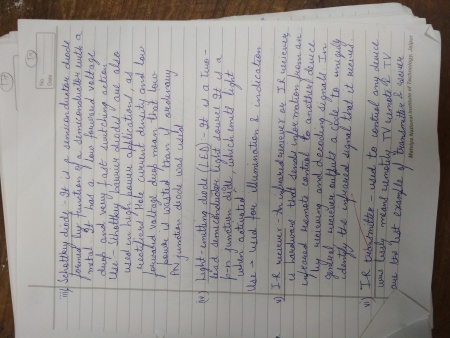 No.
Date
iii) Schottky diode - It is a semiconductor diode
formed by junction of a semiconductor with a
metal. It has a low forward voltage
drop and very fast switching action
Use - Schottky barrier diodes are also
used in high power applications, as
rectifiers. Their current density and low
forward voltage drop mean that low
power is wasted than ordinary
PN junction diode was used
iv) Light-emitting diode (LED) - It is a two-
lead semiconductor light source. It is a
p-n junction diode, which emits light
when activated
Use - used for illumination & indication
v) I.R receiver - An infrared receiver or IR receiver
is hardware that sends information from an
infrared remote control to another device
by receiving and decoding signals. In
general, receiver outputs a code to uniquely
identify the infrared signal that it receives
vi) I.R transmitter - used to control any device
wirelessly means remotely. TV remote & TV
are the best example of transmitter & receiver
Malaviya National Institute of Technology, Jaipur